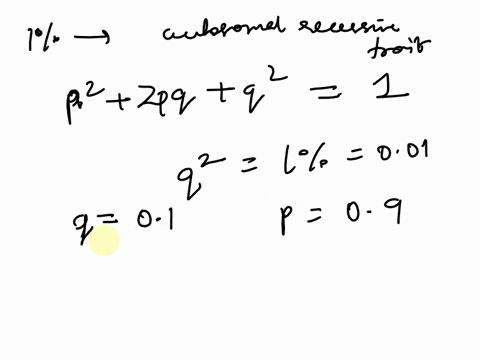 1% → autosomal recessive
trait
p² + 2pq + q² = 1
q² = 1% = 0.01
q = 0.1 p = 0.9